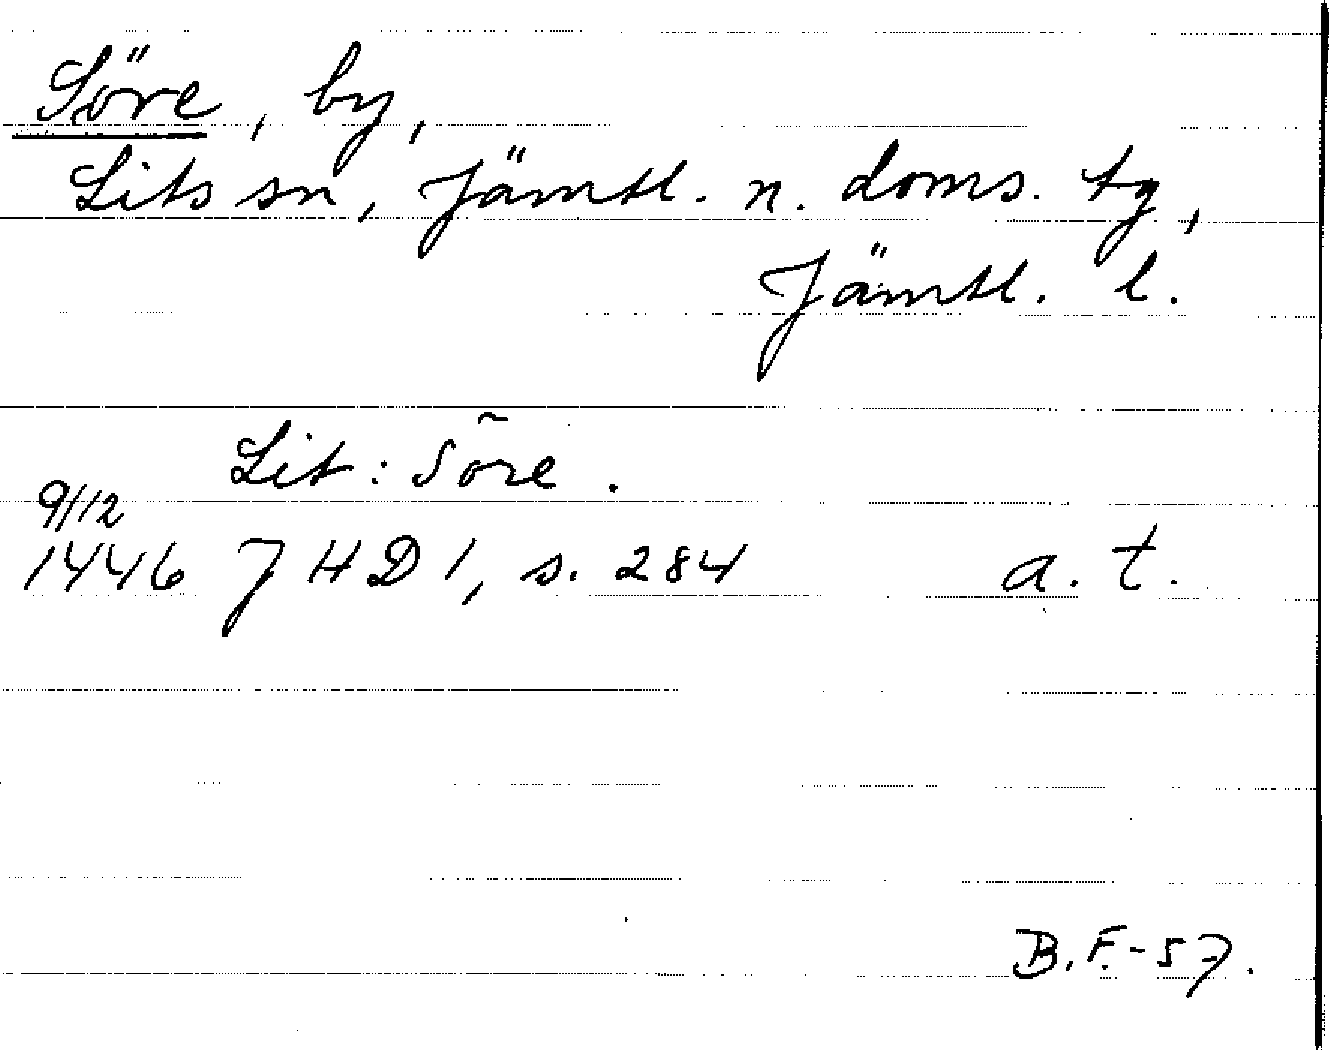 Söre, by,
Lits sn, Jämtl. n. doms. tg,
Jämtl. l.
Lit: Sõre.
9/12
1446 JHD 1, s. 284 a. t.
B.F.-57.